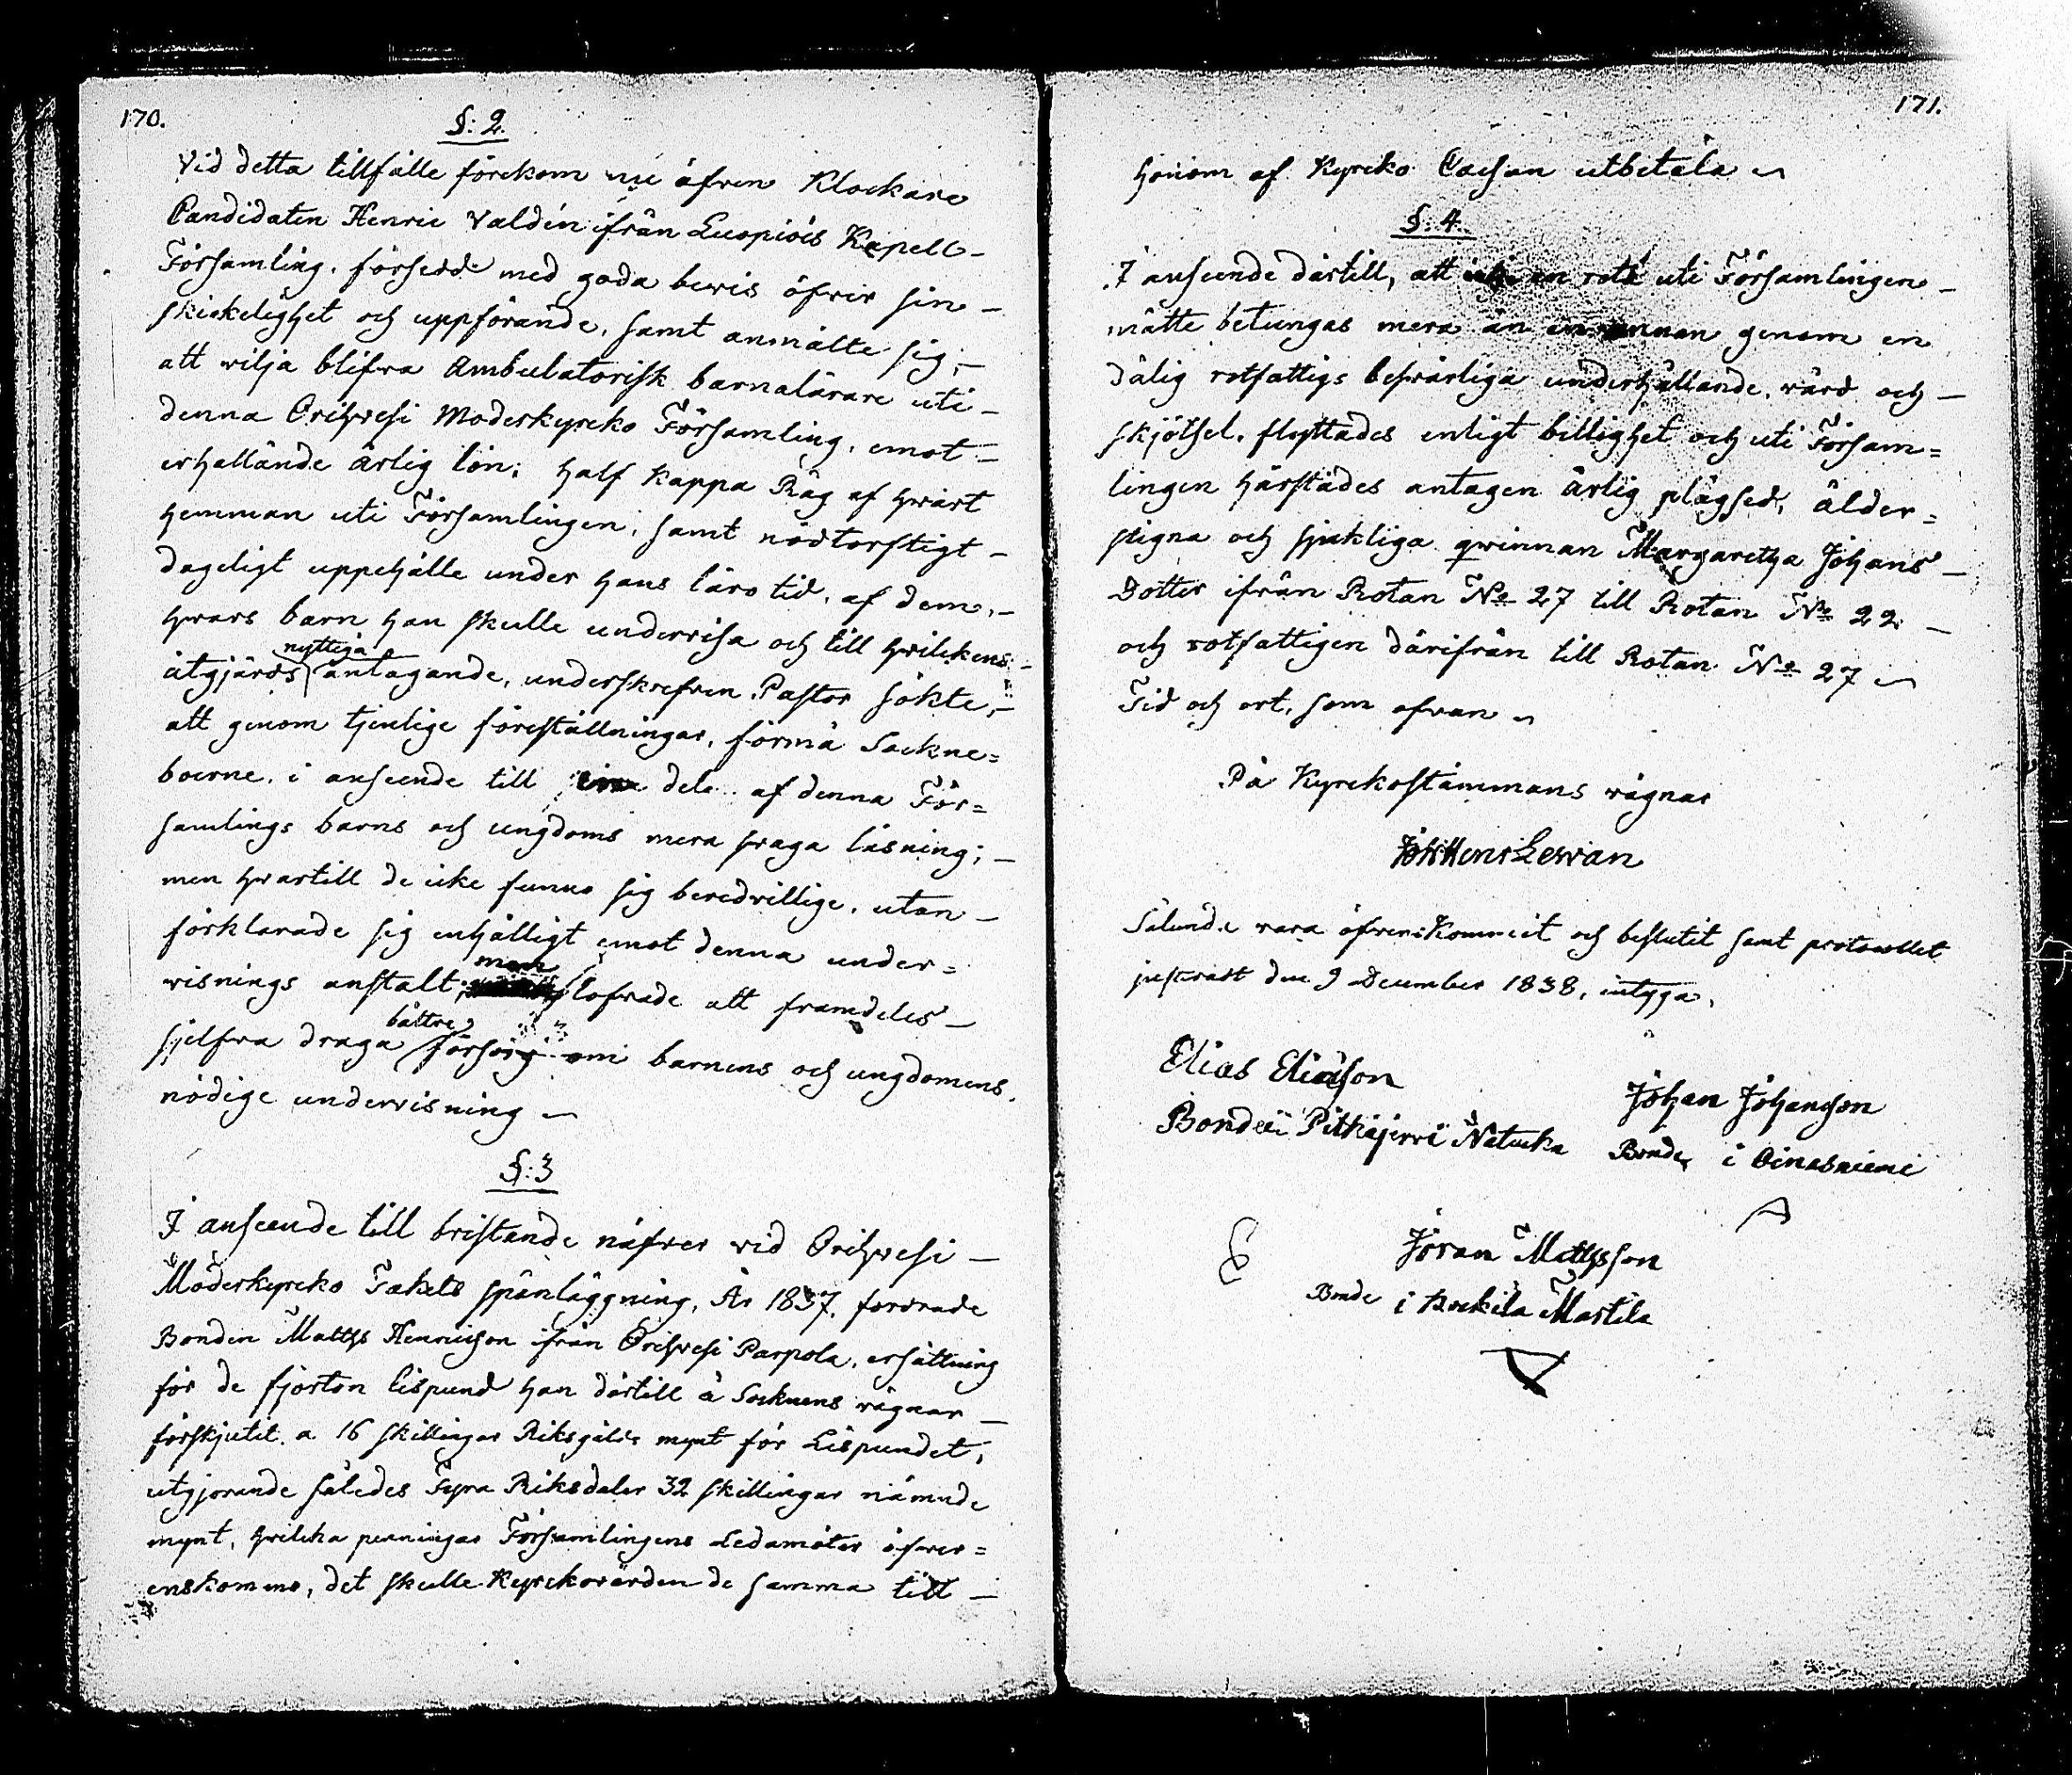 170.
§: 2.
Vid detta tillfälle förekom nu äfven Klockare
Candidaten Henric Valdén ifrån Luopiois Kapell-
Församling, försedd med goda bevis öfver sin -
skickelighet och uppförande, samt anmälte sig, -
att vilja blifva Ambulatorisk barnalärare uti -
denna Orihvesi Moderkyrko Församling, emot -
erhållande årlig lön; half kappa Råg af hvart
hemman uti Församlingen, samt nödtorftigt -
dageligt uppehälle under hans läro tid, af dem, -
hvars barn han skulle undervisa och till hvilckens -
nyttiga
åtgjärds antagande, underskrefven Pastor sökte, -
att genom tjenlige föreställningar, förmå Sockne=
boerne, i anseende till en del af denna För=
samlings barns och ungdoms mera svaga läsning; -
men hvartill de icke funno sig beredvillige, utan -
förklarade sig enhälligt emot denna under=
men
visnings anstalt; lofvade att framdeles -
bättre
sjelfva draga försorg om barnens och ungdomens
nödige undervisning
§: 3
I anseende till bristande näfver vid Orihvesi -
Moderkyrko Takets spånläggning, År 1837, fordrade
Bonden Matths Henricson ifrån Orihvesi Parpola, ersättning
för de fjorton Lispund han därtill å Socknens vägnar -
förskjutit, a 16 skillingar Riksgälds mynt för Lispundet,
utgjorande således Fyra Riksdaler 32 skillingar nämnde
mynt, hvilcka penningar Församlingens Ledamöter öfver=
enskommo, det skulle Kyrkovärden de samma till -
171.
honom af Kyrko Cassan utbetala
§: 4.
I anseende därtill, att icke en rote uti Församlingen -
måtte betungas mera än en annan genom en
dålig rotfattigs besvärliga underhållande, vård och -
skjötsel, flyttades enligt billighet och uti Försam=
lingen härstädes antagen årlig plägsed, ålder=
stigna och sjukliga qvinnan Margaretha Johans -
Dotter ifrån Rotan No 27 till Rotan No 22 -
och rotfattigen därifrån till Rotan No 27
Tid och ort, som ofvan
På Kyrckostämmans vägnar
Joh: Henr Levan
Sålunde vara öfverenskommit och beslutit samt protocollet
justeradt den 9 December 1838, intyga,
Elias Eliasson
Bonde i Pitkäjervi Natucka
Johan Johansson
Bonde i Oinasniemi
Jöran Mattsson
Bonde i Martila